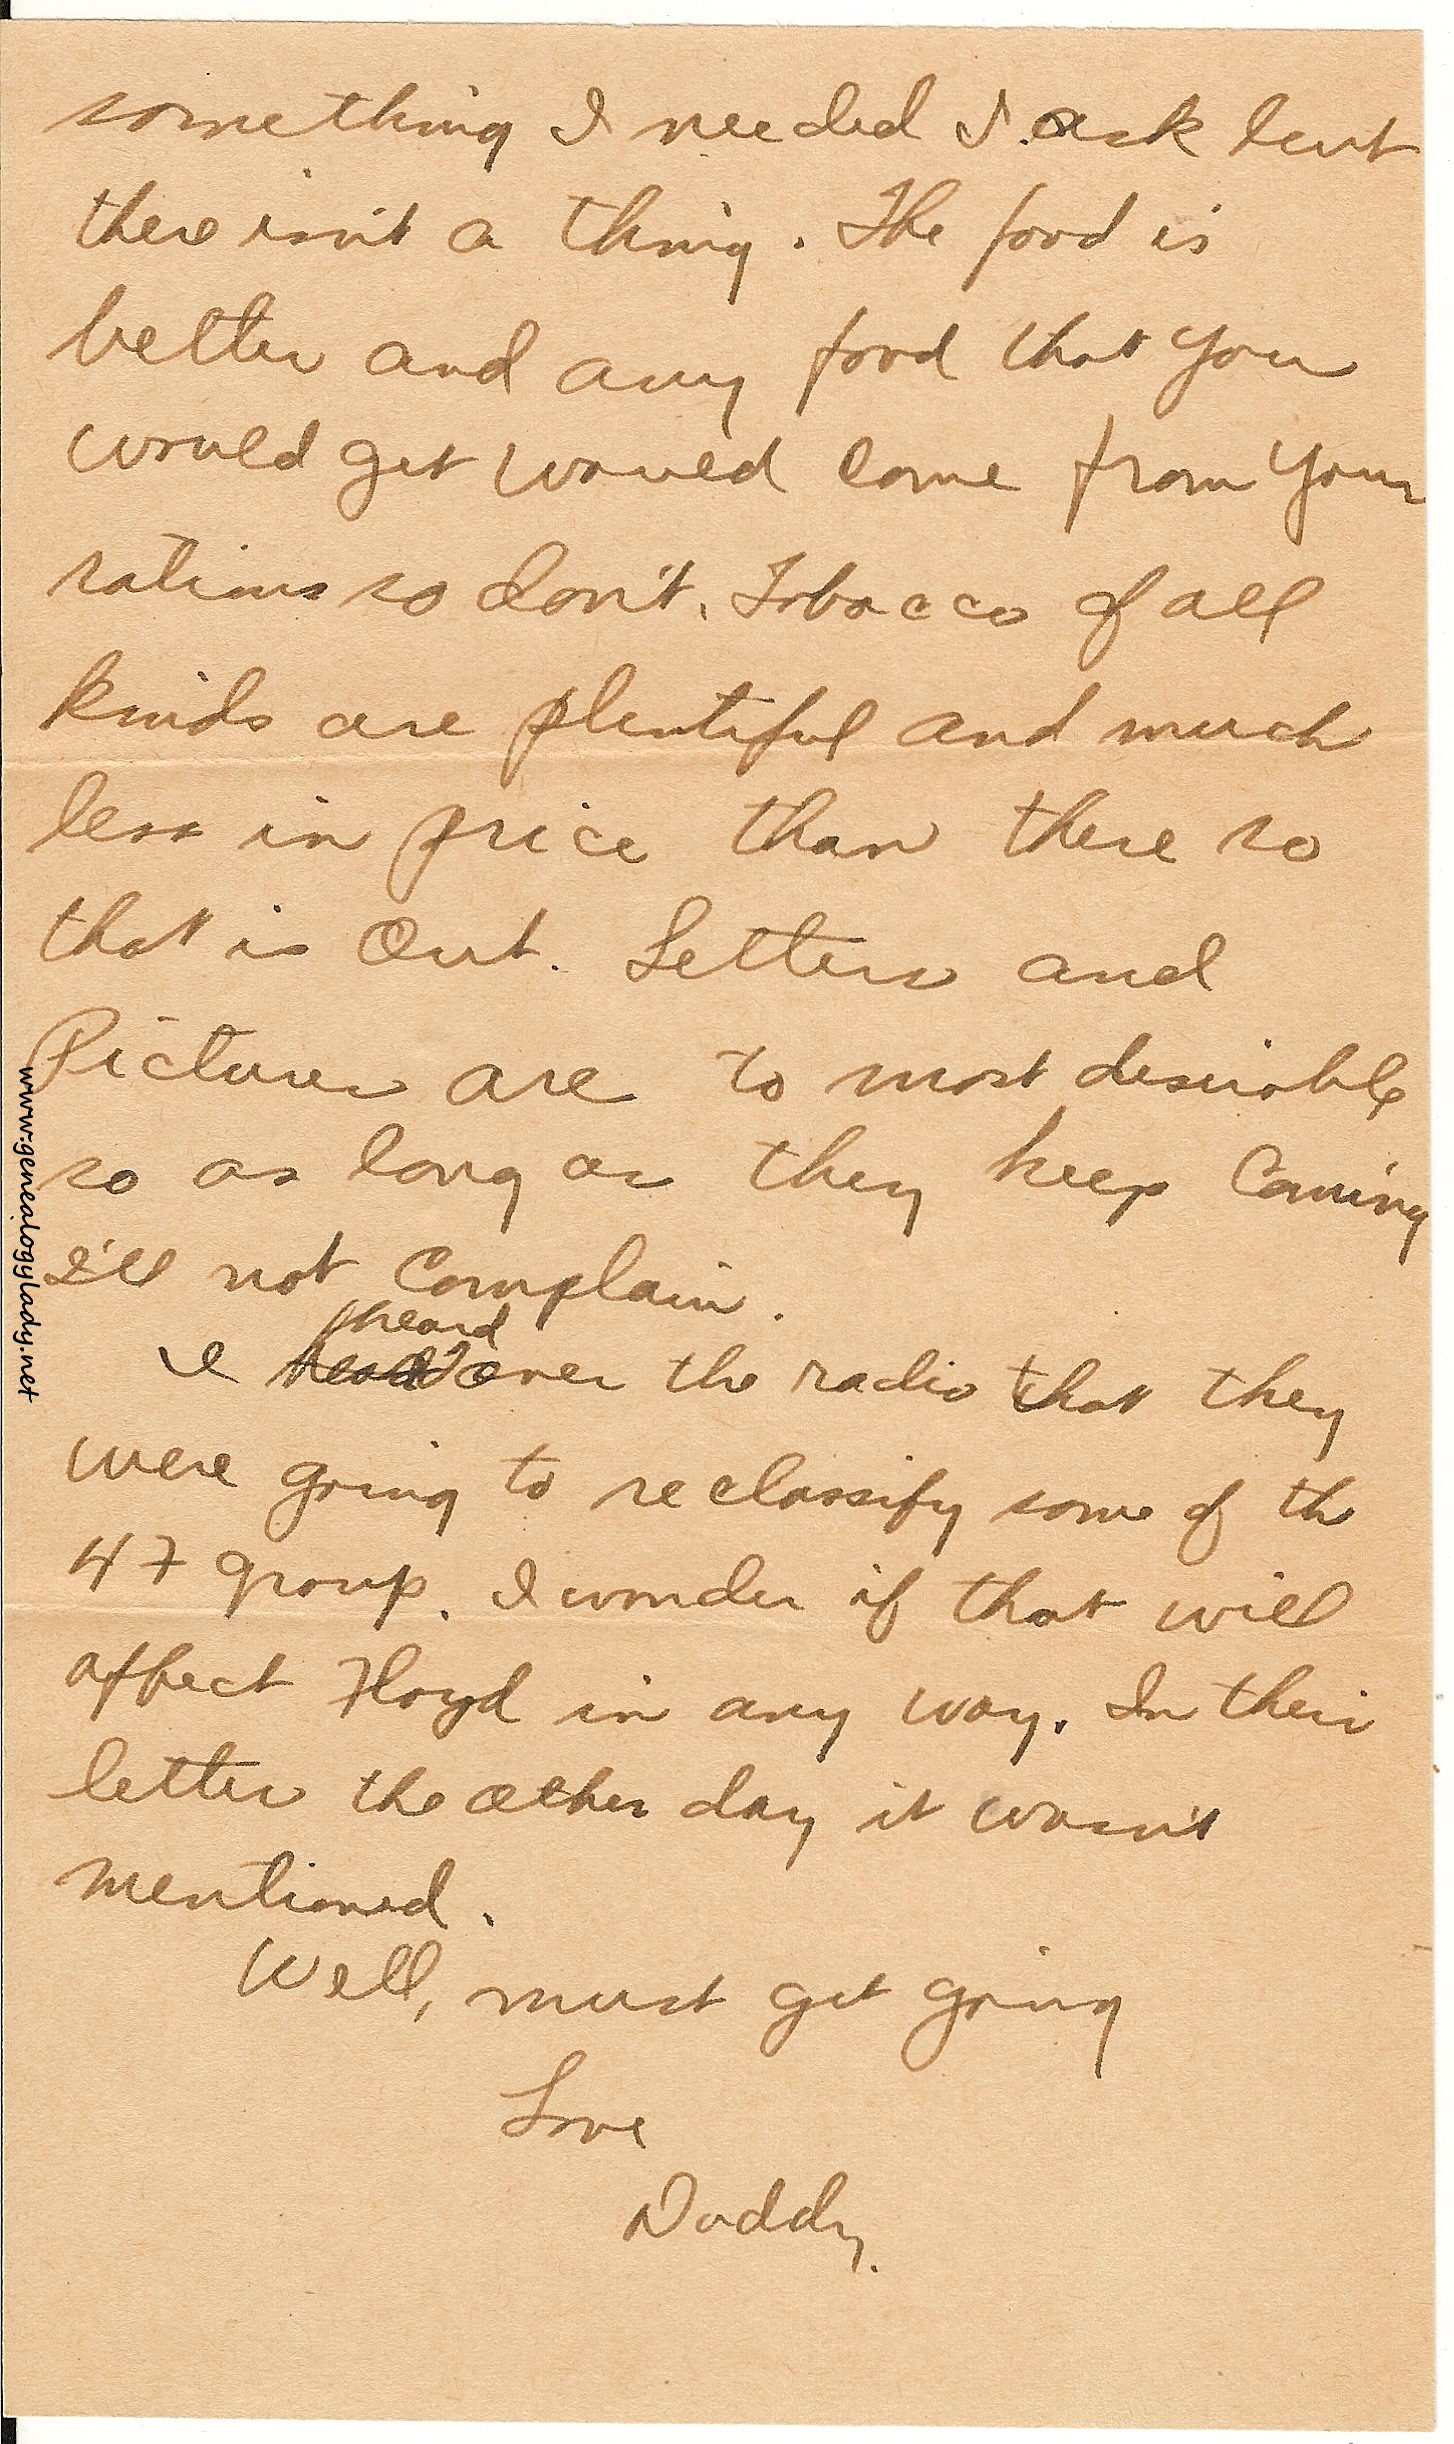 something I needed I ask but
there isn't a thing. The food is
better and any food that you
would get would come from your
rations so don't. Tobacco of all
kinds are plentiful and much
less in price than there so
that is out. Letters and
Pictures are to most desirable
so as long as they keep coming
I'll not complain.
heard
I over the radio that they
were going to reclassify some of the
47 group. I wonder if that will
affect Floyd in any way. In their
letter the other day it wasn't
mentioned.
Well, must get going
Love
Daddy.
www.genealogylady.net